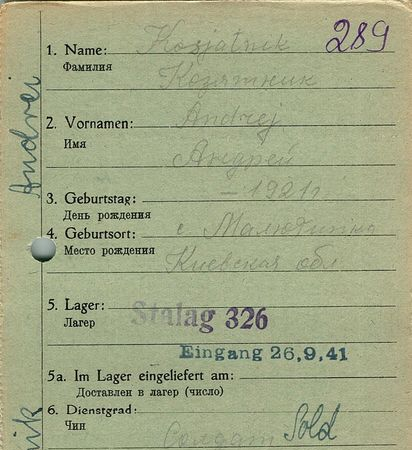 289
1. Name: Kozjatnik
Фамилия Козятник
2. Vornamen: Andrej
Имя Андрей
3. Geburtstag: – 1921 г
День рождения
4. Geburtsort: с
Место рождения Киевская обл
5. Lager: Stalag 326
Лагер
Eingang 26.9.41
5a. Im Lager eingeliefert am:
Доставлен в лагер (число)
6. Dienstgrad: Sold
Чин Солдат
Andrei